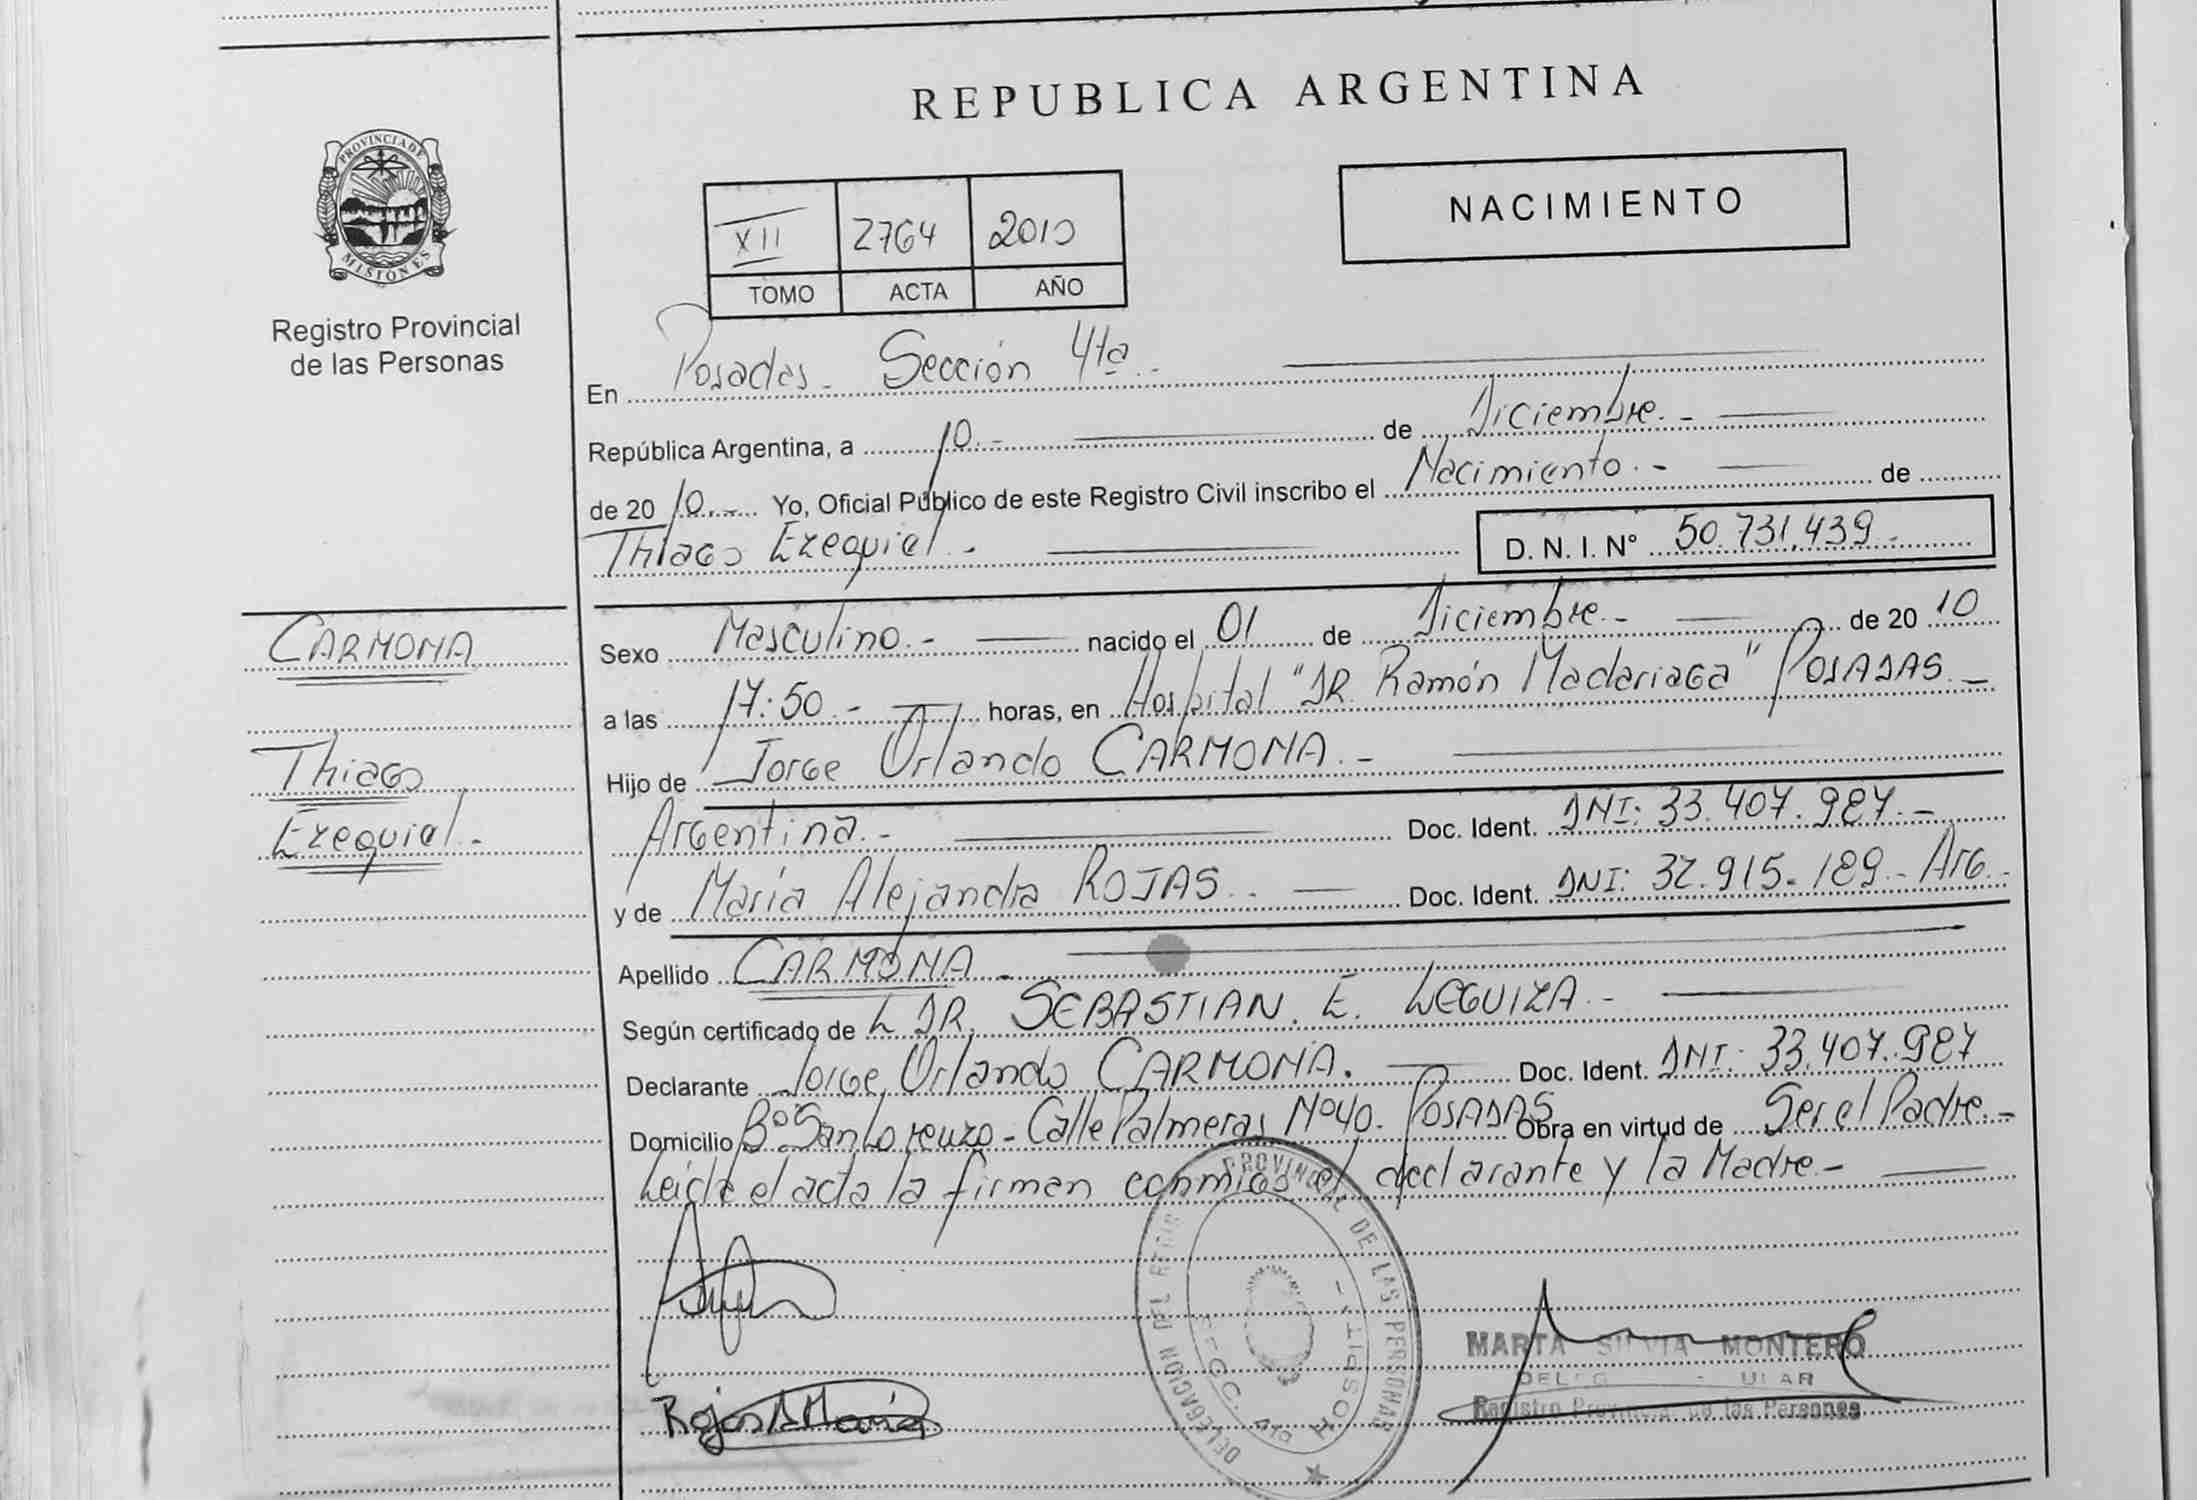 REPUBLICA ARGENTINA
PROVINCIA DE
MISIONES
Registro Provincial
de las Personas
NACIMIENTO
XII 2764 2010
TOMO ACTA AÑO
En Posadas - Sección 4ta.-
República Argentina, a 10.- de Diciembre.-
de 2010.- Yo, Oficial Público de este Registro Civil inscribo el Nacimiento.- de
Thiago Ezequiel.- D. N. I. Nº 50.731.439.-
CARMONA
Thiago
Ezequiel.-
Sexo Masculino.- nacido el 01 de Diciembre.- de 2010
a las 17:50.- horas, en Hospital "DR. Ramón Madariaga" POSADAS.-
Hijo de Jorge Orlando CARMONA.-
Argentina.- Doc. Ident. DNI: 33.407.987.-
y de María Alejandra ROJAS.- Doc. Ident. DNI: 32.915.189.- Arg.-
Apellido CARMONA.-
Según certificado de DR. SEBASTIAN. E. LEGUIZA.-
Declarante Jorge Orlando CARMONA. Doc. Ident. DNI: 33.407.987
Domicilio Bº San Lorenzo - Calle Palmeras Nº40. POSADAS Obra en virtud de Ser el Padre.-
Leída el acta la firman conmigo el declarante y la Madre.-
DELEGACION DEL REGISTRO PROVINCIAL DE LAS PERSONAS
SECC. 4ta
Rojas A María
MARTA SILVIA MONTERO
Registro Provincial de las Personas